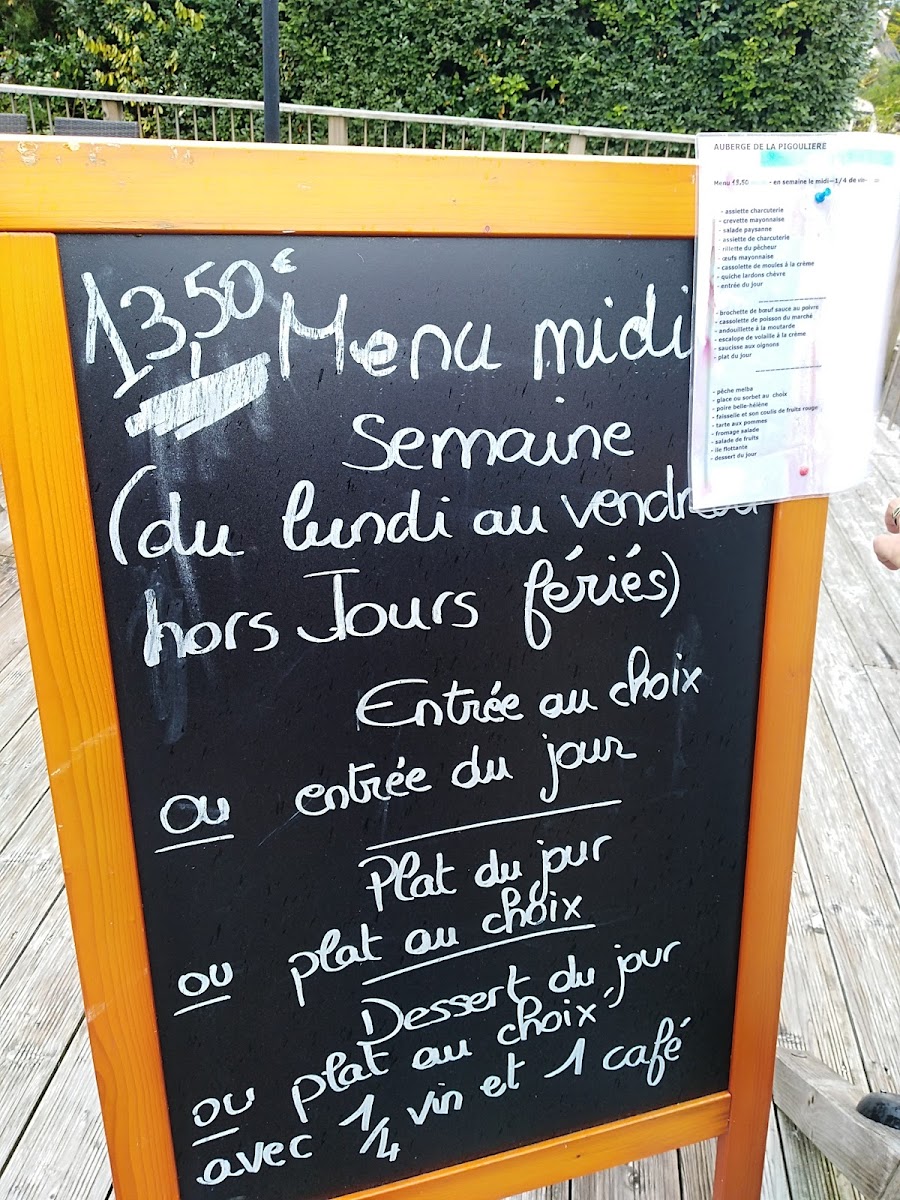 13,50€ Menu midi
Semaine
(du lundi au vendredi
hors Jours fériés)
Entrée au choix
ou entrée du jour
Plat du jour
ou plat au choix
Dessert du jour
ou plat au choix
avec 1/4 vin et 1 café
AUBERGE DE LA PIGOULIERE
Menu 13.50 - en semaine le midi—1/4 de vin
- assiette charcuterie
- crevette mayonnaise
- salade paysanne
- assiette de charcuterie
- rillette du pêcheur
- œufs mayonnaise
- cassolette de moules à la crème
- quiche lardons chèvre
- entrée du jour
- brochette de bœuf sauce au poivre
- cassolette de poisson du marché
- andouillette à la moutarde
- escalope de volaille à la crème
- saucisse aux oignons
- plat du jour
- pêche melba
- glace ou sorbet au choix
- poire belle-hélène
- faisselle et son coulis de fruits rouge
- tarte aux pommes
- fromage salade
- salade de fruits
- ile flottante
- dessert du jour